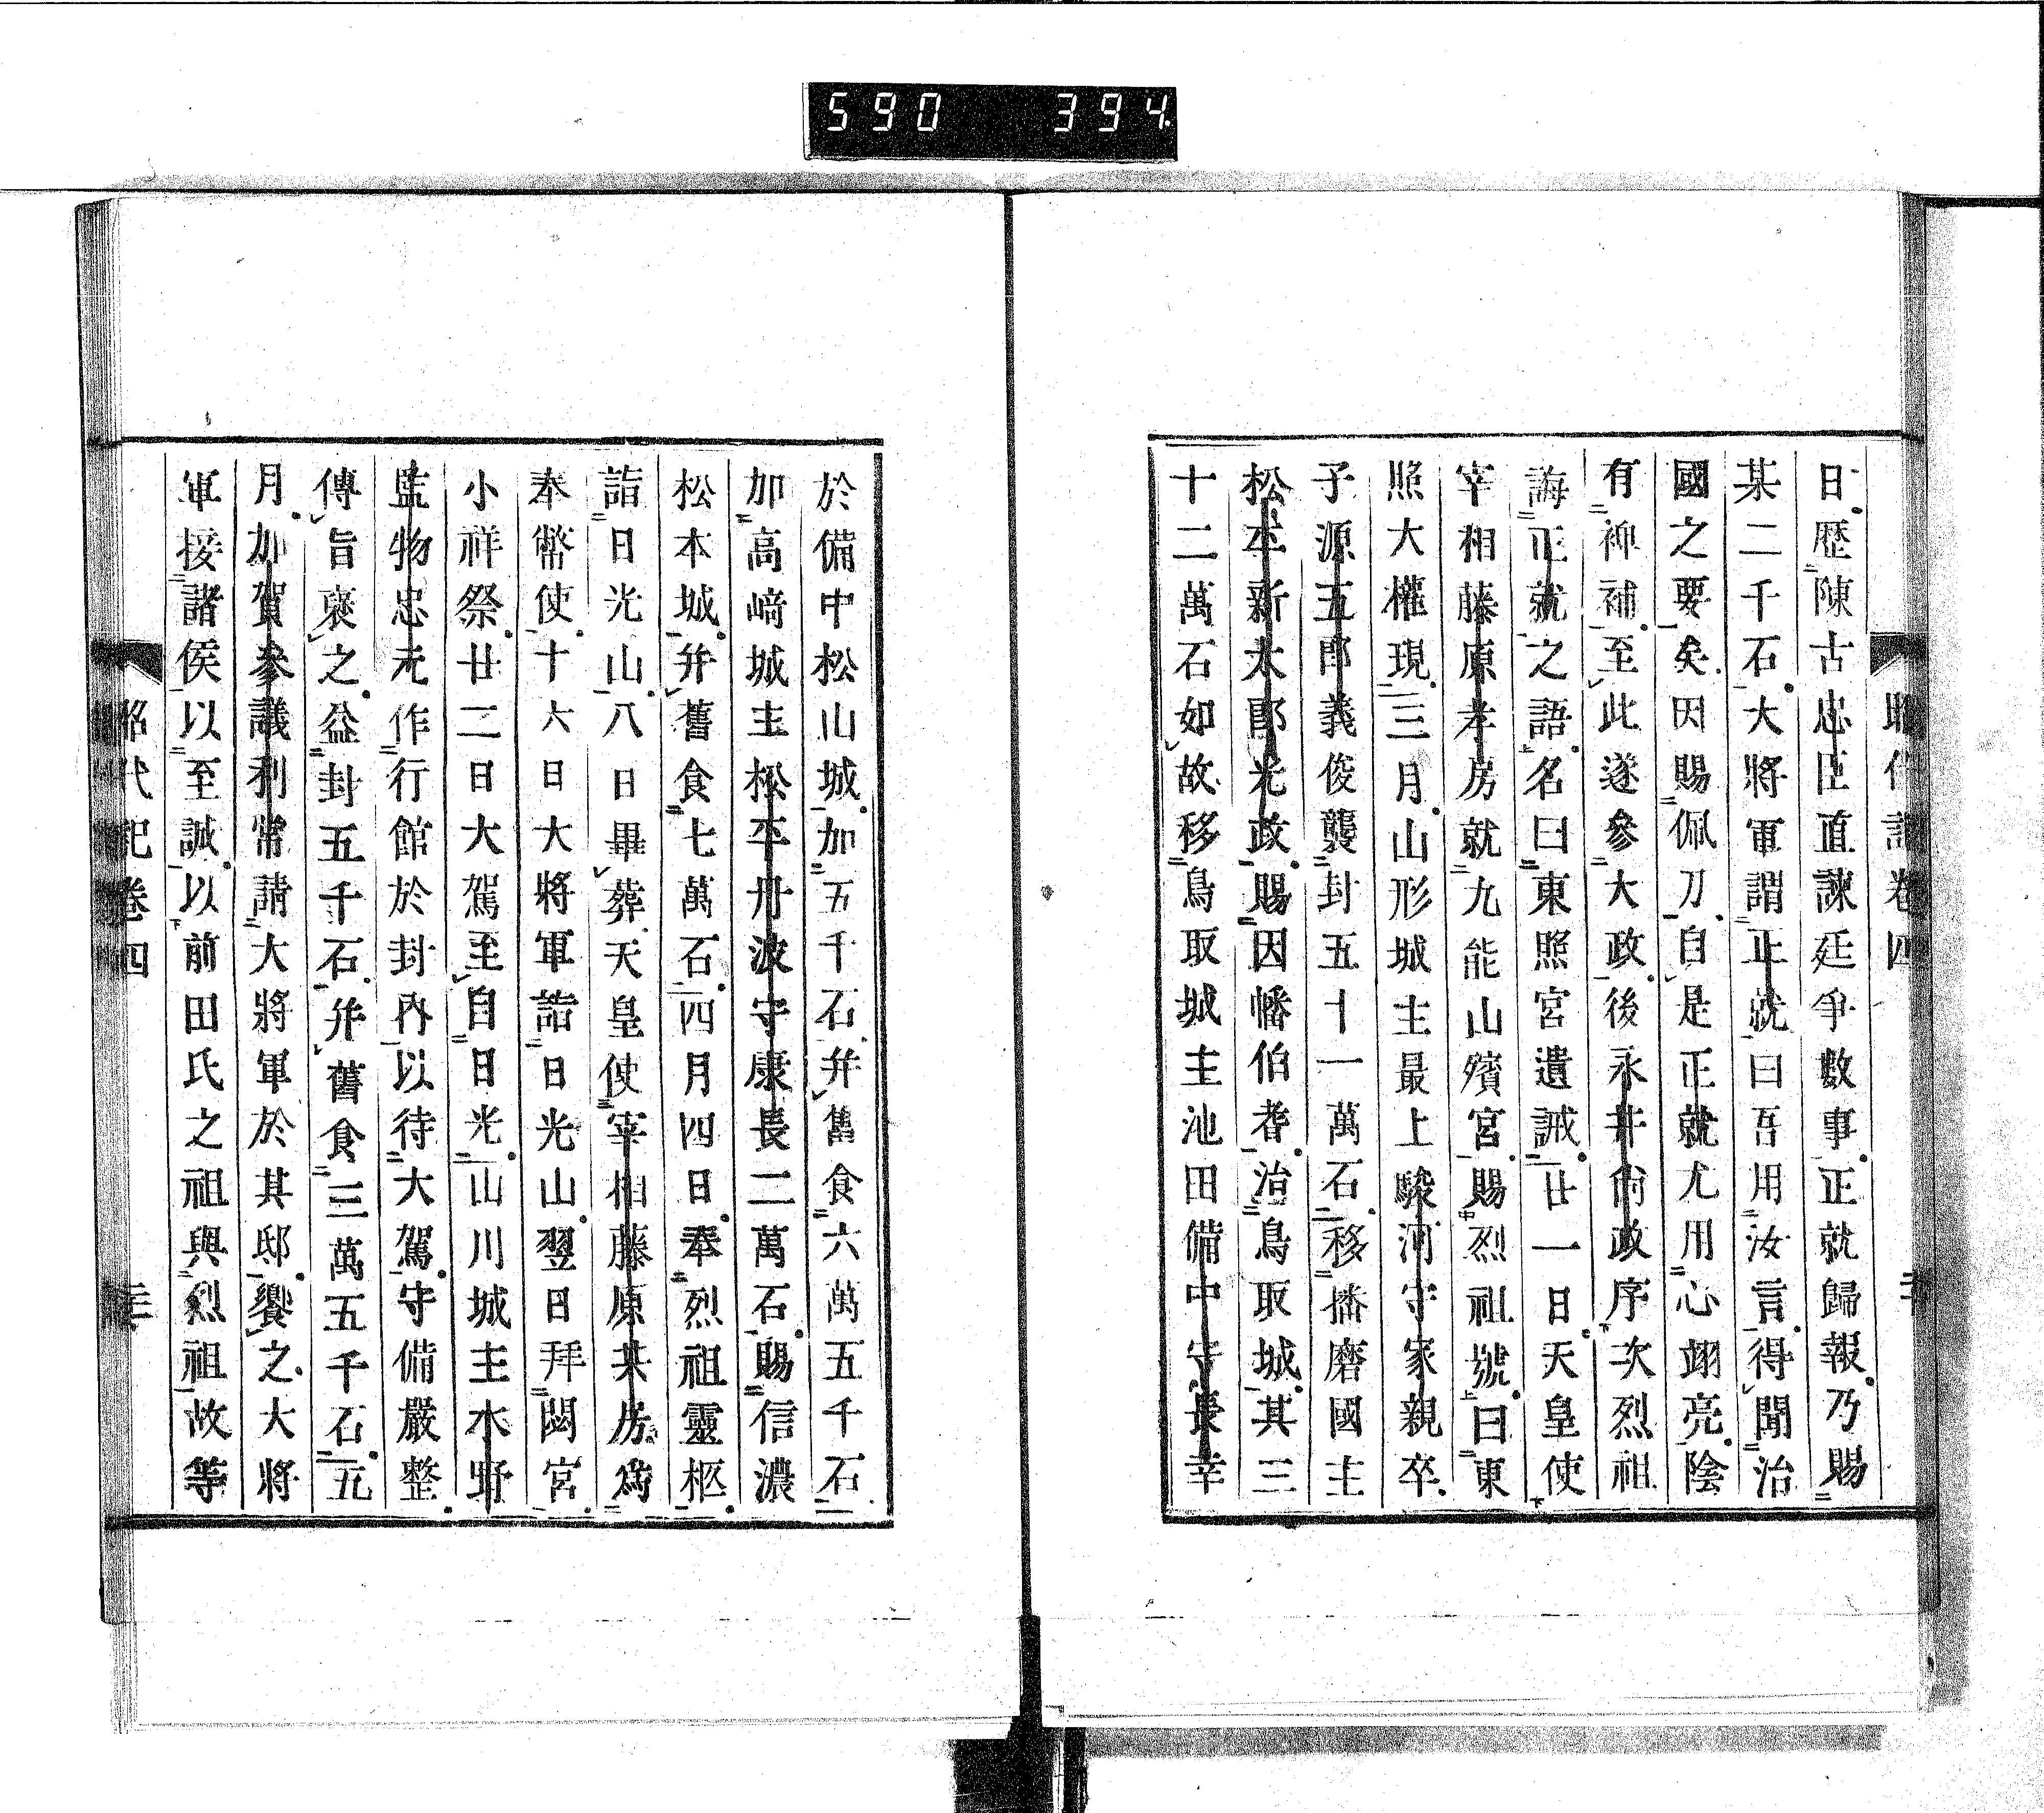 590 394
日歴陳古忠臣直諫廷爭數事正就歸報乃賜
某二千石大將軍謂正就曰吾用汝言得聞治
國之要矣因賜佩刀自是正就尤用心翊亮陰
有裨補至此遂參大政後永井尙政序次烈祖
誨正就之語名曰東照宮遺誡廿一日天皇使
宰相藤原孝房就久能山殯宮賜烈祖號曰東
照大權現三月山形城主最上駿河守家親卒
子源五郎義俊襲封五十一萬石移播磨國主
松平新太郎光政賜因幡伯耆治鳥取城其三
十二萬石如故移鳥取城主池田備中守長幸
於備中松山城加五千石幷舊食六萬五千石
加高﨑城主松平丹波守康長二萬石賜信濃
松本城幷舊食七萬石四月四日奉烈祖靈柩
詣日光山八日畢葬天皇使宰相藤原共房爲
奉幣使十六日大將軍詣日光山翌日拜閟宮
小祥祭廿二日大駕至自日光山川城主水野
監物忠元作行館於封內以待大駕守備嚴整
傳旨褒之益封五千石幷舊食三萬五千石五
月加賀參議利常請大將軍於其邸饗之大將
軍接諸侯以至誠以前田氏之祖與烈祖故等
昭代記卷四